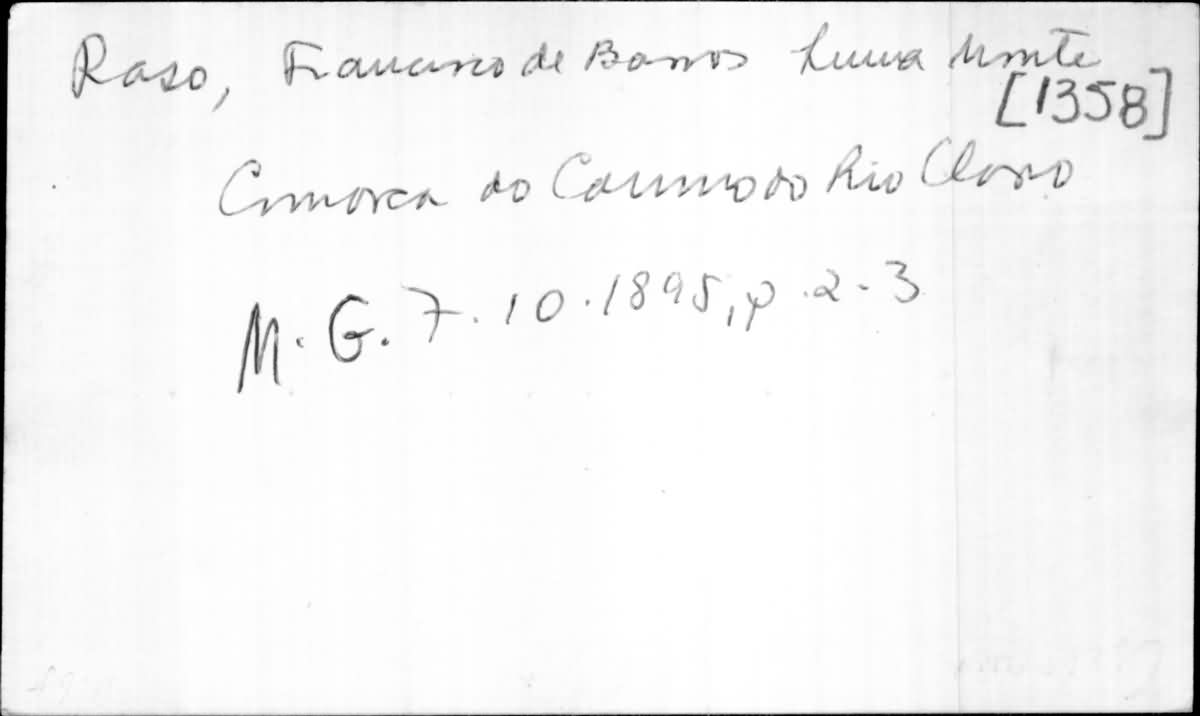 Raso, Francisco de Barros Lima Monte
[1358]
Comarca do Carmo do Rio Claro
M. G. 7.10.1895, p. 2-3